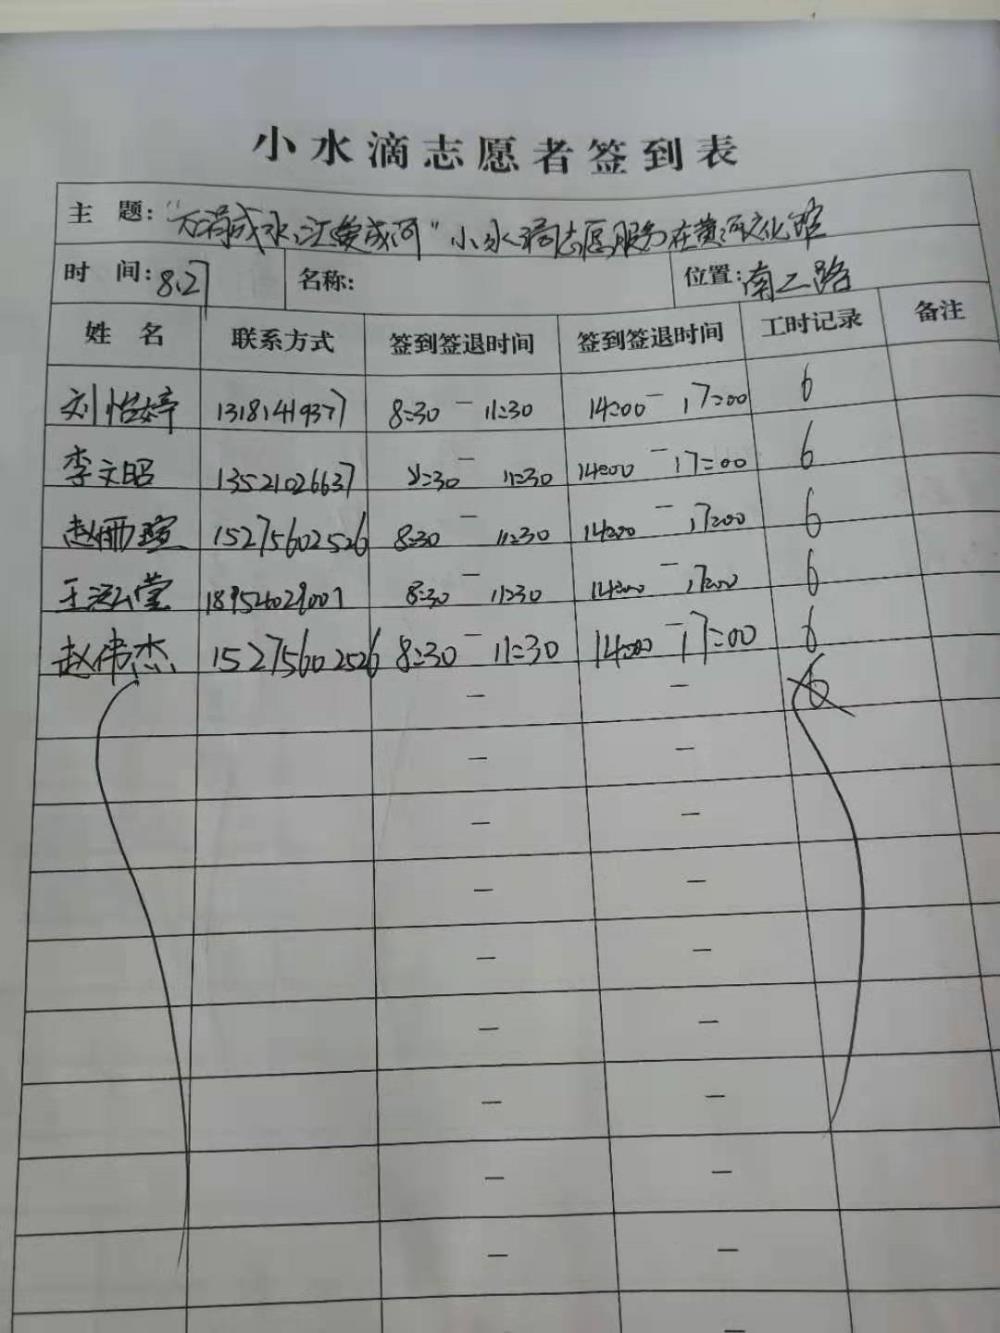 小水滴志愿者签到表
主 题: "万涓成水,汇聚成河"小水滴志愿服务在黄河文化馆
时 间: 8.27 名称: 位置: 南二路
姓 名 联系方式 签到签退时间 签到签退时间 工时记录 备注
刘怡婷 13181419377 8:30 — 11:30 14:00 — 17:00 6
李文昭 13521026637 8:30 — 11:30 14:00 — 17:00 6
赵 瑄 15275602526 8:30 — 11:30 14:00 — 17:00 6
王泓萱 8:30 — 11:30 14:00 — 17:00 6
赵伟杰 15275602526 8:30 — 11:30 14:00 — 17:00 6
— — 6
— —
— —
— —
— —
— —
— —
— —
— —
—